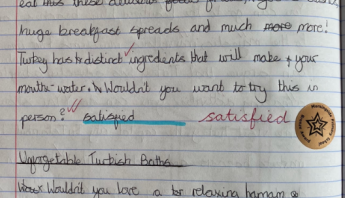 eat these delicious
huge breakfast spreads and much more more!
Turkey has distinct ingredients that will make your
mouth-water. Wouldn't you want to try this in
person? satisfied satisfied
Unforgetable Turkish Baths
Wouldn't you love a relaxing hamam